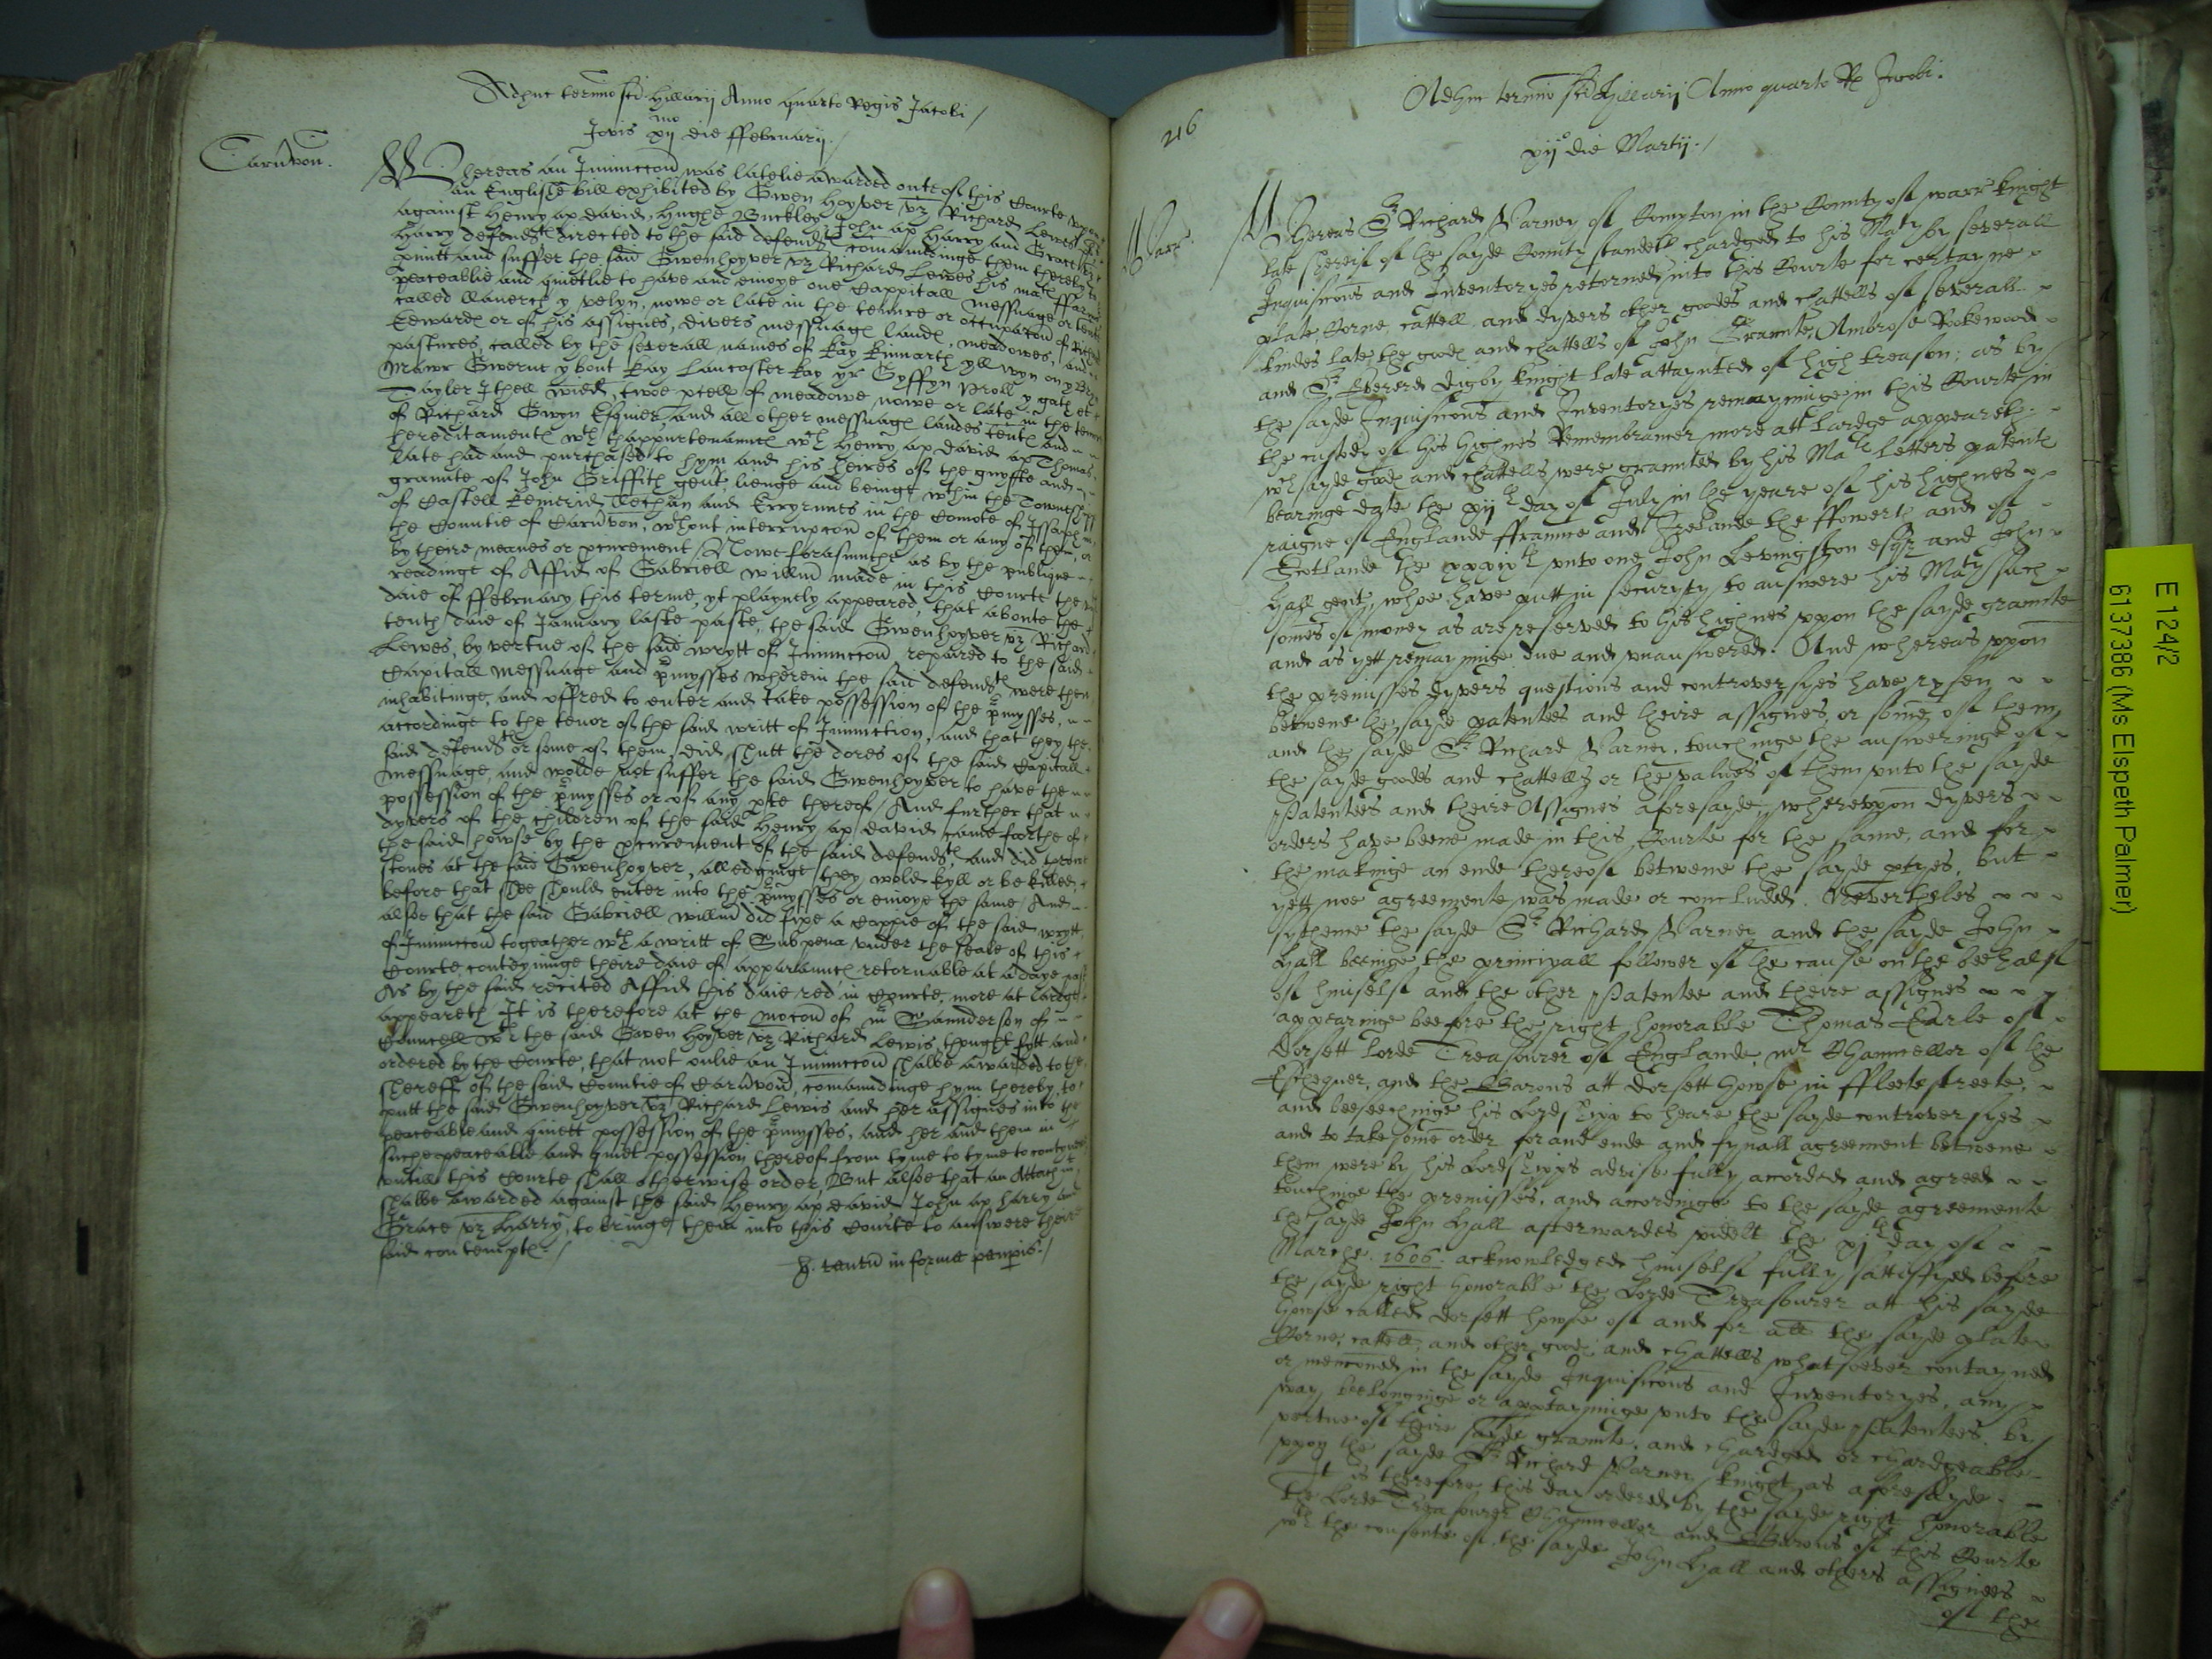 Adhuc termino sci Hillarij Anno quarto Regis Jacobi /
Jovis xijmo die ffebruarij /
Carnvon.
Whereas an Iniunccon was latelie awarded oute of this Courte upon
an Englishe bill exhibited by Gwen hoyver vz Richard Lewes
against Henry ap david, hughe Buckley John ap Harry and Grace vz
Harry defendts directed to the said defendts comaundinge them thereby to
pmitt and suffer the said Gwenhoyver vz Richard Lewes his mats ffarmor
peaceablie and quietlie to have and enioye one Cappitall messuage or tente
called llanerch y velyn, nowe or late in the tenure or occupacon of Richard
Edwards or of his assignes, divers messuags lands, meadowes, and
pastures, called by the severall names of kay kinnarth yll wyn on y
mawr Gwernc y bont kay Lancaster kay yr Gyffyn Proll y gath et
Tayler Ithell wiedd, twoe pcells of meadowe nowe or late in the tenure
of Richard Gwyn Esquier, and all other messuags landes tents and
hereditaments wth thappurtenanncs wch Henry ap david ap Thomas
late had and purchased to hym and his heires of the guyfte and
graunte of John Griffith gent, lienge and beinge wthin the Towneshipps
of Castell kemerid llechan and Erryrunes in the Comote of Issaph in
the Countie of Carnvon, wthout interrupcon of them or any of them, or
by theire meanes or pcurement / Nowe forasmuche as by the publique
readinge of Affid of Gabriell willm made in this Courte the
daie of ffebruary this terme, yt playnely appeared, that aboute the
tenth daie of January laste paste, the said Gwenhoyver vz Richard
Lewes, by vertue of the said wrytt of Iniunccon repaired to the said
Capitall messuage and pmysses wherein the said defendts were then
inhabitinge, and offred to enter and take possession of the pmysses,
accordinge to the tenor of the said writt of Iniunction, and that they the
said defendts or some of them, did shutt the dores of the said Capitall
messuage, and wolde not suffer the said Gwenhoyver to have the
possession of the pmysses or of any pte thereof / And further that
dyvers of the children of the said Henry ap david came foorthe of
the said howse by the pcurement of the said defendts and did throwe
stones at the said Gwenhoyver, alledginge they wold kyll or be killed,
before that shee should enter into the pmysses or enioye the same / And
alsoe that the said Gabriell willm did fixe a Coppie of the said wrytt
of Iniunccon togeather wth a writt of Subpena under the seale of this
Courte conteyninge theire daie of apparaunce retornable at a daye past
As by the said recited Affid this daie red in Courte, more at lardge
appeareth It is therefore at the mocon of mr Saunderson of
Councell wth the said Gwen hoyver vz Richard Lewis, thought fytt and
ordered by the Courte, that not onlie an Iniunccon shalbe awarded to the
shereff of the said Countie of Carnvon, comaundinge hym thereby to
putt the said Gwenhoyver vz Richard Lewis and her assignes into the
peaceable and quiett possession of the pmysses, and her and them in
suche peaceable and quiet possession thereof from tyme to tyme to contynue
untill this Courte shall otherwise order / But alsoe that an Attachmt
shalbe awarded against the said Henry ap david John ap harry and
Grace vz harry, to bringe them into this Courte to answere theire
said contempts /
tantu in forma paupis /
216
Adhuc termino sci Hillarij Anno quarto Rs Jacobi.
xijo die Martij. /
Warr.
Whereas Sr Richard Varney of Compton in the County of warr knight
late Shereif of the sayde County standeth chardged to his Maty by severall
Inquisicons and Inventoryes retorned into this Courte for certayne
plate, Corne, cattell and dyvers other goodes and chattells of severall
kindes late the goods and chattells of John Graunte, Ambrose Rookewood
and Sr Everard Digby knight late attaynted of high treason; as by
the sayde Inquisicons and Inventoryes remayninge in this Courte in
the custody of his highnes Remembrancer more att Lardge appeareth.
wch sayde goods and chattells were graunted by his Mats Letters patents
bearinge date the xijth day of July in the yeare of his highnes
raigne of Englande ffraunce and Irelande the ffowerth and of
Scotlande the xxxixth unto one John Levingston esqr and John
Hall gent, whoe have putt in security to answere his Maty such
somes of money as are reserved to his highnes uppon the sayde graunte
and as yett remayninge due and unanswered. And whereas uppon
the premisses dyvers questions and controversyes have rysen
betwene the sayde patentees and theire assignes, or some of them
and the sayde Sr Richard Varney, touchinge the answeringe of
the sayde goodes and chattells or the values of them unto the sayde
Patentees and theire Assignes aforesayde; whereuppon dyvers
orders have beene made in this Courte for the same, and for
the makinge an ende thereof betwene the sayde ptyes, but
yett noe agreemente was made or concluded. Neverthelesse
sythence the sayde Sr Richard Varney and the sayde John
Hall beeinge the principall follower of the cause on the beehalf
of himself and the other Patentee and theire assignes
appearinge beefore the right honorable Thomas Earle of
dorsett Lorde Treasourer of Englande, mr Chauncellor of the
Eschequer, and the Barons att dorsett howse in ffleetestreete,
and beseechinge his Lordshipp to heare the sayde controversyes
and to take some order for and ende and fynall agreement betwene
them were by his Lordshipps advise fully accorded and agreed
touchinge the premisses, and accordinge to the sayde agreemente
the sayde John Hall afterwardes videlt the xjth day of
Marche. 1606. acknowledged himself fully sattisfyed before
the sayde right honorable the Lorde Treasourer att his sayde
howse called dorsett howse of and for all the sayde plate
Corne, cattell, and other goods and chattells whatsoever contayned
or menconed in the sayde Inquisicons and Inventoryes, any
way belonginge or apptayninge unto the sayde Patentees by
vertue of theire sayde graunte, and chardged or chardgeable
uppon the sayde Sr Richard Varney knight as aforesayde.
It is therefore this day ordered by the sayde right honorable
the Lorde Treasourer Chauncellor and Barons of this Courte
wth the consente of the sayde John Hall and others assignees
of the
E 124/2
6137386 (Ms Elspeth Palmer)